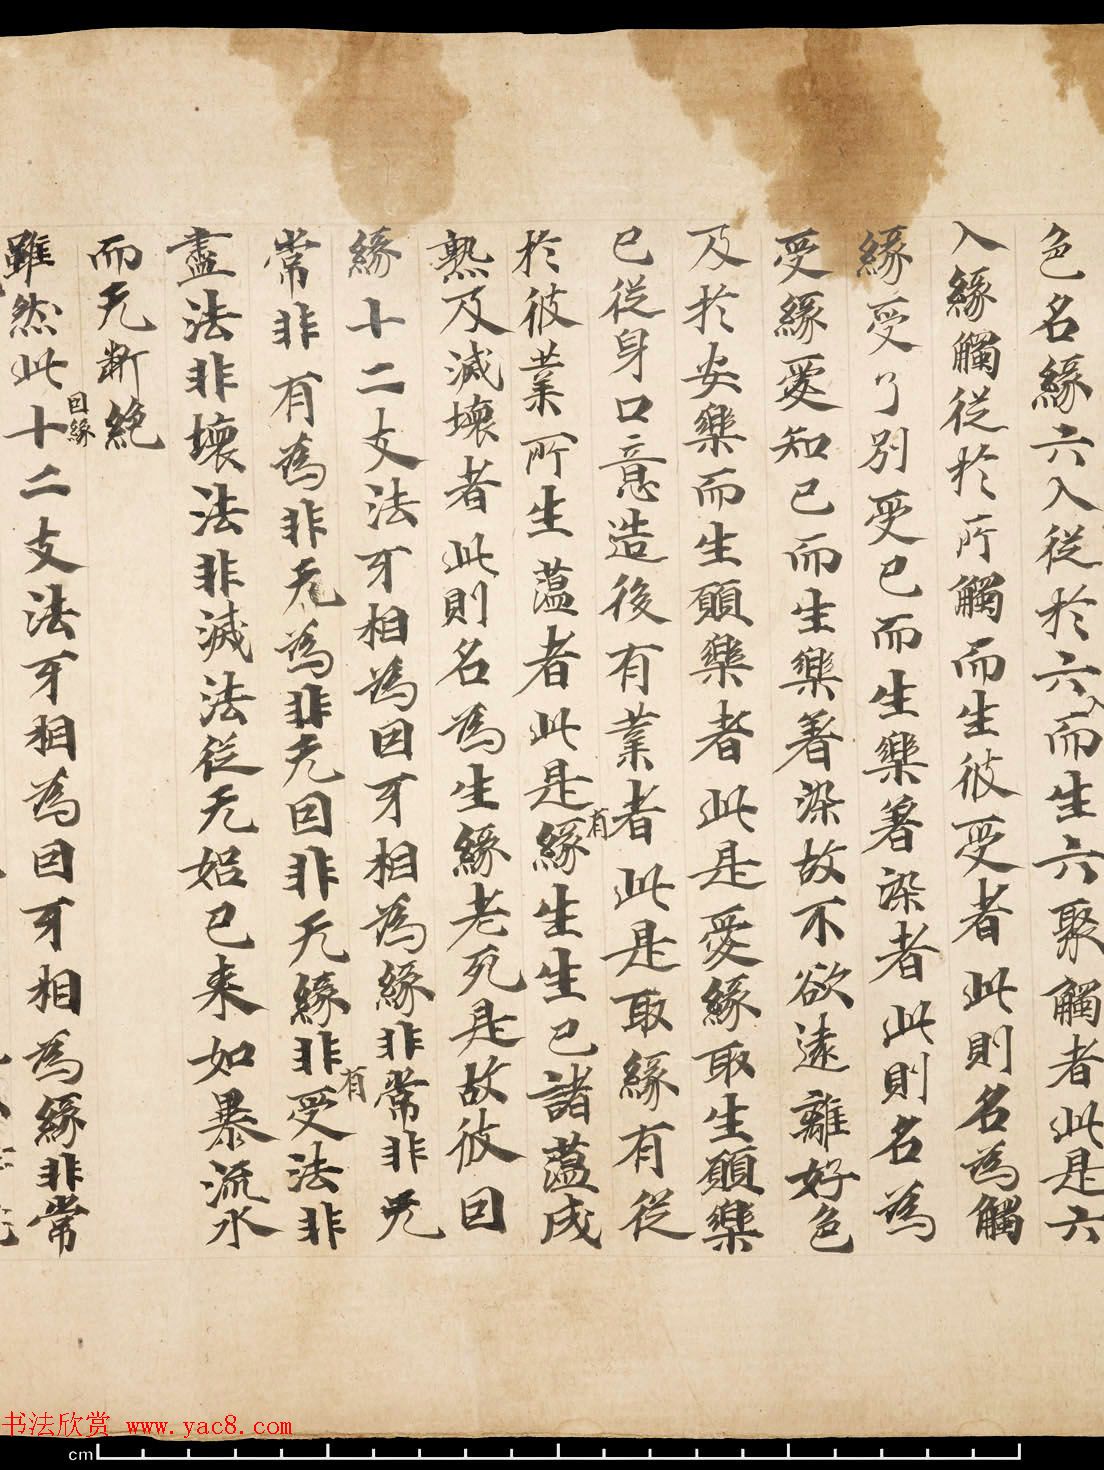 色名緣六入從於六入而生六聚觸者此是六
入緣觸從於所觸而生彼受者此則名為觸
緣受了別受已而生樂著染者此則名為
受緣愛知已而生樂著染故不欲遠離好色
及於安樂而生願樂者此是愛緣取生願樂
已從身口意造後有業者此是取緣有從
於彼業所生蘊者此是緣有生生已諸蘊成
熟及滅壞者此則名為生緣老死是故彼因
緣十二支法互相為因互相為緣非常非无
常非有為非无為非无因非无緣非有受法非
盡法非壞法非滅法從无始已来如暴流水
而无断絕
雖然此因緣十二支法互相為因互相為緣非常
书法欣赏 www.yac8.com
cm